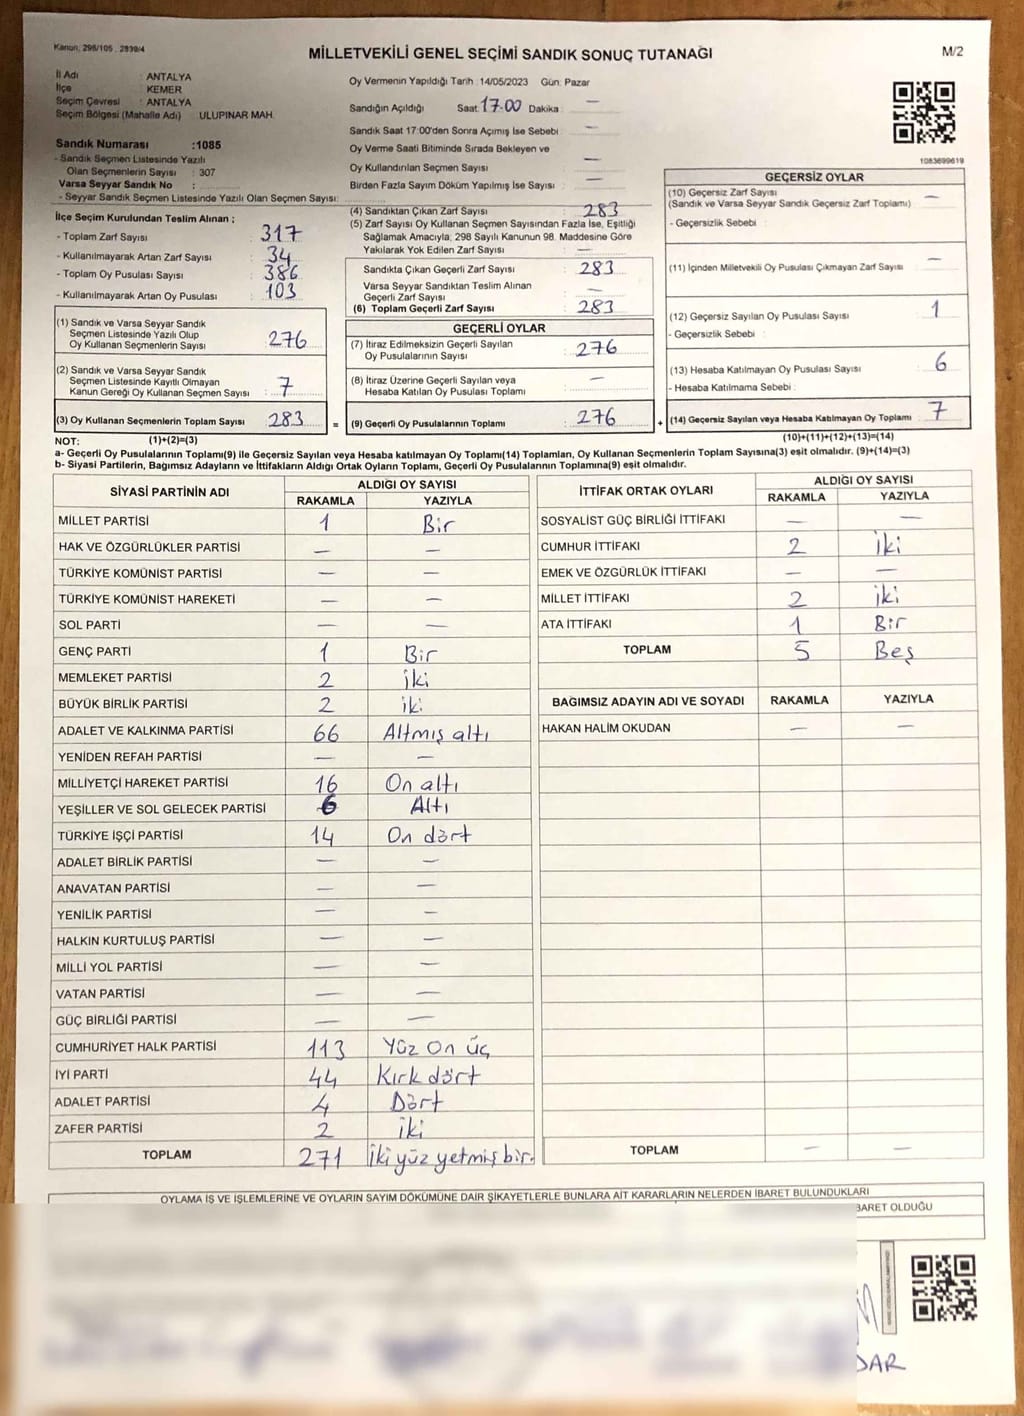 Kanun, 298/105 , 2839/4
MİLLETVEKİLİ GENEL SEÇİMİ SANDIK SONUÇ TUTANAĞI
M/2
İl Adı : ANTALYA
İlçe : KEMER
Seçim Çevresi : ANTALYA
Seçim Bölgesi (Mahalle Adı) : ULUPINAR MAH.
Sandık Numarası :1085
- Sandık Seçmen Listesinde Yazılı
Olan Seçmenlerin Sayısı : 307
Varsa Seyyar Sandık No :
- Seyyar Sandık Seçmen Listesinde Yazılı Olan Seçmen Sayısı:
İlçe Seçim Kurulundan Teslim Alınan ;
- Toplam Zarf Sayısı : 317
- Kullanılmayarak Artan Zarf Sayısı : 34
- Toplam Oy Pusulası Sayısı : 386
- Kullanılmayarak Artan Oy Pusulası : 103
(1) Sandık ve Varsa Seyyar Sandık
Seçmen Listesinde Yazılı Olup
Oy Kullanan Seçmenlerin Sayısı : 276
(2) Sandık ve Varsa Seyyar Sandık
Seçmen Listesinde Kayıtlı Olmayan
Kanun Gereği Oy Kullanan Seçmen Sayısı : 7
(3) Oy Kullanan Seçmenlerin Toplam Sayısı : 283
Oy Vermenin Yapıldığı Tarih :14/05/2023 Gün: Pazar
Sandığın Açıldığı Saat: 17.00 Dakika : —
Sandık Saat 17:00'den Sonra Açımış İse Sebebi : —
Oy Verme Saati Bitiminde Sırada Bekleyen ve
Oy Kullandırılan Seçmen Sayısı : —
Birden Fazla Sayım Döküm Yapılmış İse Sayısı : —
(4) Sandıktan Çıkan Zarf Sayısı : 283
(5) Zarf Sayısı Oy Kullanan Seçmen Sayısından Fazla İse, Eşitliği
Sağlamak Amacıyla; 298 Sayılı Kanunun 98. Maddesine Göre
Yakılarak Yok Edilen Zarf Sayısı : —
Sandıkta Çıkan Geçerli Zarf Sayısı : 283
Varsa Seyyar Sandıktan Teslim Alınan
Geçerli Zarf Sayısı : —
(6) Toplam Geçerli Zarf Sayısı : 283
GEÇERLİ OYLAR
(7) İtiraz Edilmeksizin Geçerli Sayılan
Oy Pusulalarının Sayısı : 276
(8) İtiraz Üzerine Geçerli Sayılan veya
Hesaba Katılan Oy Pusulası Toplamı : —
= (9) Geçerli Oy Pusulalarının Toplamı : 276
1083699619
GEÇERSİZ OYLAR
(10) Geçersiz Zarf Sayısı : —
(Sandık ve Varsa Seyyar Sandık Geçersiz Zarf Toplamı)
- Geçersizlik Sebebi :
(11) İçinden Milletvekili Oy Pusulası Çıkmayan Zarf Sayısı : —
(12) Geçersiz Sayılan Oy Pusulası Sayısı : 1
- Geçersizlik Sebebi :
(13) Hesaba Katılmayan Oy Pusulası Sayısı : 6
- Hesaba Katılmama Sebebi :
+ (14) Geçersiz Sayılan veya Hesaba Katılmayan Oy Toplamı : 7
NOT: (1)+(2)=(3)
(10)+(11)+(12)+(13)=(14)
a- Geçerli Oy Pusulasının Toplamı(9) ile Geçersiz Sayılan veya Hesaba katılmayan Oy Toplamı(14) Toplamları, Oy Kullanan Seçmenlerin Toplam Sayısına(3) eşit olmalıdır. (9)+(14)=(3)
b- Siyasi Partilerin, Bağımsız Adayların ve İttifakların Aldığı Ortak Oyların Toplamı, Geçerli Oy Pusulalarının Toplamına(9) eşit olmalıdır.
SİYASİ PARTİNİN ADI
ALDIĞI OY SAYISI
RAKAMLA YAZIYLA
MİLLET PARTİSİ 1 Bir
HAK VE ÖZGÜRLÜKLER PARTİSİ — —
TÜRKİYE KOMÜNİST PARTİSİ — —
TÜRKİYE KOMÜNİST HAREKETİ — —
SOL PARTİ — —
GENÇ PARTİ 1 Bir
MEMLEKET PARTİSİ 2 iki
BÜYÜK BİRLİK PARTİSİ 2 iki
ADALET VE KALKINMA PARTİSİ 66 Altmış altı
YENİDEN REFAH PARTİSİ — —
MİLLİYETÇİ HAREKET PARTİSİ 16 On altı
YEŞİLLER VE SOL GELECEK PARTİSİ 6 Altı
TÜRKİYE İŞÇİ PARTİSİ 14 On dört
ADALET BİRLİK PARTİSİ — —
ANAVATAN PARTİSİ — —
YENİLİK PARTİSİ — —
HALKIN KURTULUŞ PARTİSİ — —
MİLLİ YOL PARTİSİ — —
VATAN PARTİSİ — —
GÜÇ BİRLİĞİ PARTİSİ — —
CUMHURİYET HALK PARTİSİ 113 Yüz On üç
İYİ PARTİ 44 Kırk dört
ADALET PARTİSİ 4 Dört
ZAFER PARTİSİ 2 iki
TOPLAM 271 İki yüz yetmiş bir.
İTTİFAK ORTAK OYLARI
ALDIĞI OY SAYISI
RAKAMLA YAZIYLA
SOSYALİST GÜÇ BİRLİĞİ İTTİFAKI — —
CUMHUR İTTİFAKI 2 iki
EMEK VE ÖZGÜRLÜK İTTİFAKI — —
MİLLET İTTİFAKI 2 iki
ATA İTTİFAKI 1 Bir
TOPLAM 5 Beş
BAĞIMSIZ ADAYIN ADI VE SOYADI RAKAMLA YAZIYLA
HAKAN HALİM OKUDAN — —
TOPLAM — —
OYLAMA İŞ VE İŞLEMLERİNE VE OYLARIN SAYIM DÖKÜMÜNE DAİR ŞİKAYETLERLE BUNLARA AİT KARARLARIN NELERDEN İBARET BULUNDUKLARI
BARET OLDUĞU
DAR